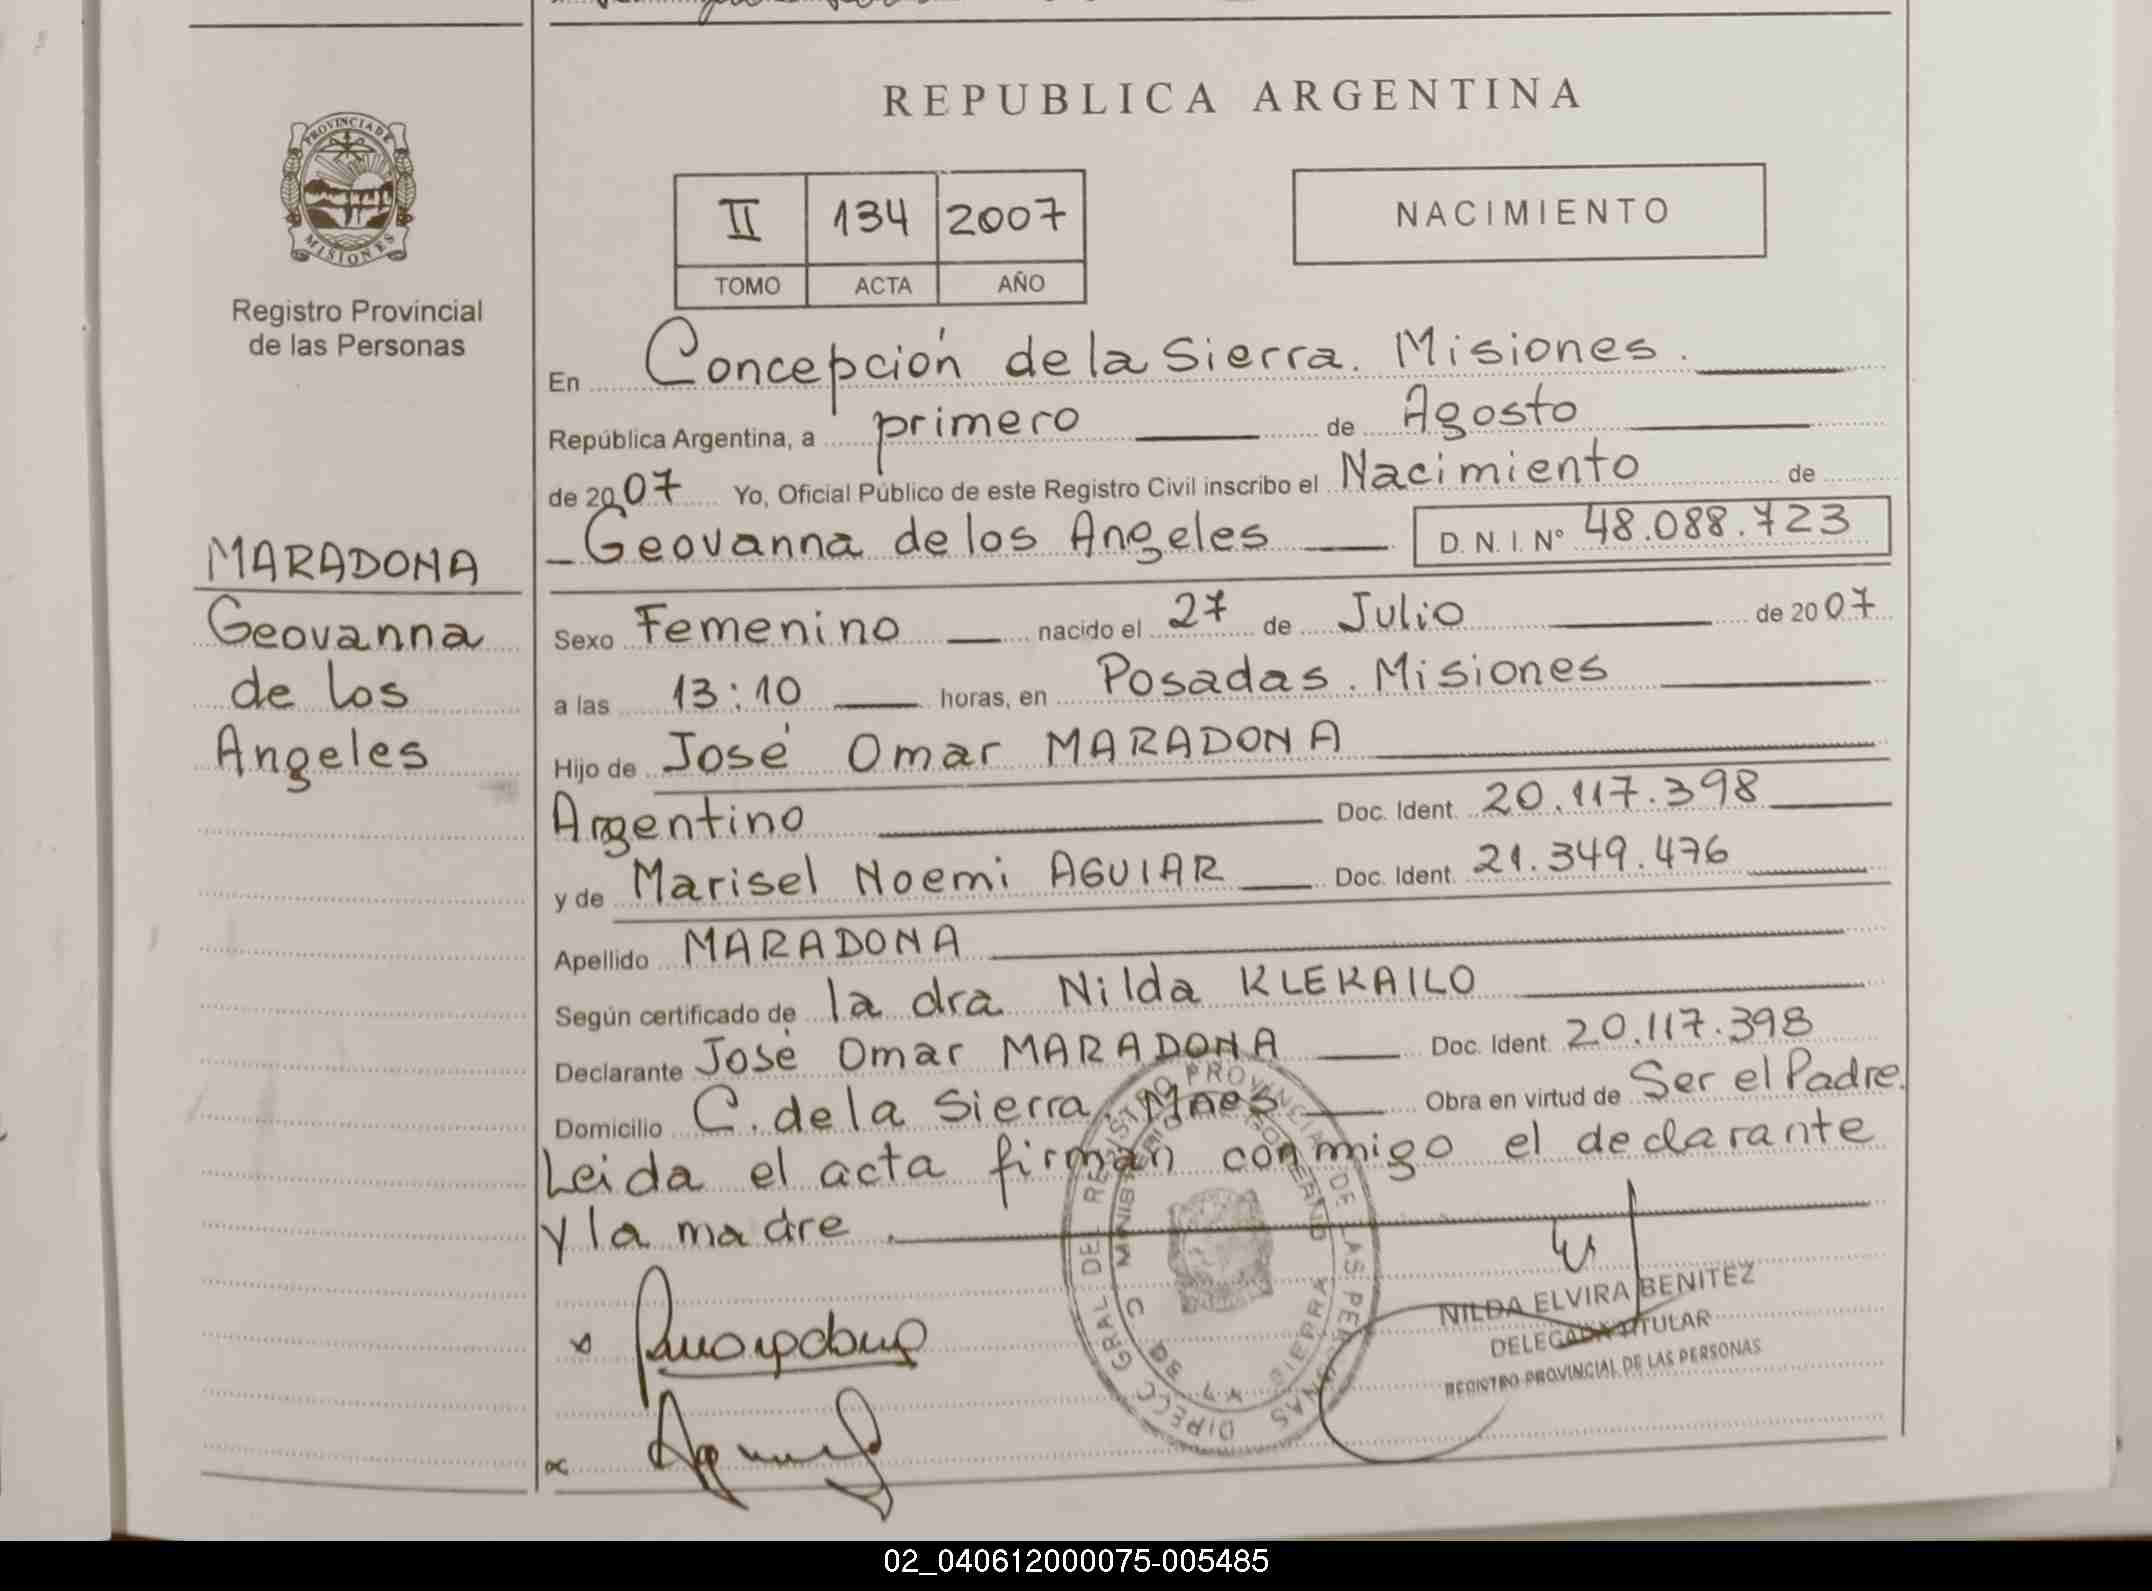 REPUBLICA ARGENTINA
PROVINCIA DE MISIONES
Registro Provincial
de las Personas
II 134 2007
TOMO ACTA AÑO
NACIMIENTO
MARADONA
Geovanna
de los
Angeles
En Concepción de la Sierra. Misiones.
República Argentina, a primero de Agosto
de 2007 Yo, Oficial Público de este Registro Civil inscribo el Nacimiento de
Geovanna de los Angeles D. N. I. Nº 48.088.723
Sexo Femenino nacido el 27 de Julio de 2007
a las 13:10 horas, en Posadas. Misiones
Hijo de José Omar MARADONA
Argentino Doc. Ident. 20.117.398
y de Marisel Noemi AGUIAR Doc. Ident. 21.349.476
Apellido MARADONA
Según certificado de la dra Nilda KLEKAILO
Declarante José Omar MARADONA Doc. Ident. 20.117.398
Domicilio C. de la Sierra. Mnes Obra en virtud de Ser el Padre.
Leida el acta firman conmigo el declarante
y la madre.
DIRECC GRAL DE REGISTRO PROVINCIAL DE LAS PERSONAS
MINISTERIO GOBIERNO
C DE LA SIERRA
NILDA ELVIRA BENITEZ
DELEGADA TITULAR
REGISTRO PROVINCIAL DE LAS PERSONAS
02_040612000075-005485